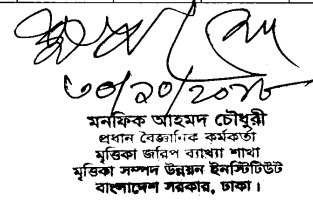 ৩০/১০/২০১৮
মনফিক আহমদ চৌধুরী
প্রধান বৈজ্ঞানিক কর্মকর্তা
মৃত্তিকা জরিপ ব্যাখ্যা শাখা
মৃত্তিকা সম্পদ উন্নয়ন ইনস্টিটিউট
বাংলাদেশ সরকার, ঢাকা।